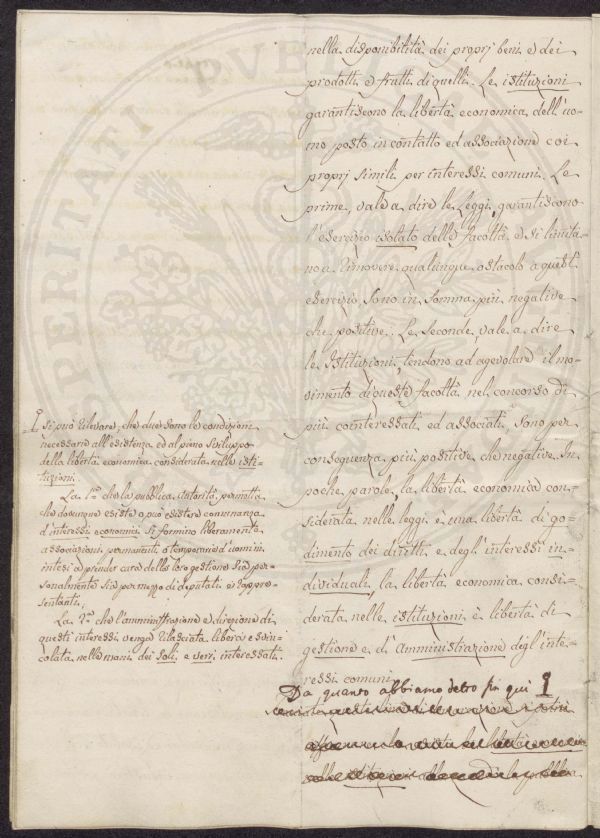 nella disponibilità dei proprj beni e dei
prodotti e frutti di quelli. Le istituzioni
garantiscono la libertà economica dell'uo-
mo posto in contatto ed associazione coi
proprj simili per interessi comuni. Le
prime, vale a dire le Leggi, garantiscono
l'esercizio isolato delle facoltà, e si limita-
no a rimovere qualunque ostacolo a questo
esercizio. Sono in somma più negative
che positive. Le seconde, vale a dire
le Istituzioni, tendono ad agevolare il mo-
vimento di queste facoltà nel concorso di
più cointeressati ed associati. Sono per
conseguenza più positive che negative. In
poche parole, la libertà economica con-
siderata nelle leggi è una libertà di go-
dimento dei diritti e degl'interessi in-
dividuali, la libertà economica consi-
derata nelle istituzioni è libertà di
gestione e d'Amministrazione degl'inte-
ressi comuni.
Da quanto abbiamo detto fin qui
si può rilevare, che due sono le condizioni
necessarie all'esistenza ed al pieno sviluppo
della libertà economica considerata nelle isti-
tuzioni.
La 1.a che la pubblica autorità permetta
che dovunque esiste o può esistere comunanza
d'interessi economici si formino liberamente
associazioni permanenti o temporarie d'uomini
intesi a prender cura della loro gestione sia per-
sonalmente sia per mezzo di deputati e rappre-
sentanti.
La 2.a che l'amministrazione e direzione di
questi interessi venga rilasciata libera e svin-
colata nelle mani dei soli e veri interessati.
PERITATI PVBLI